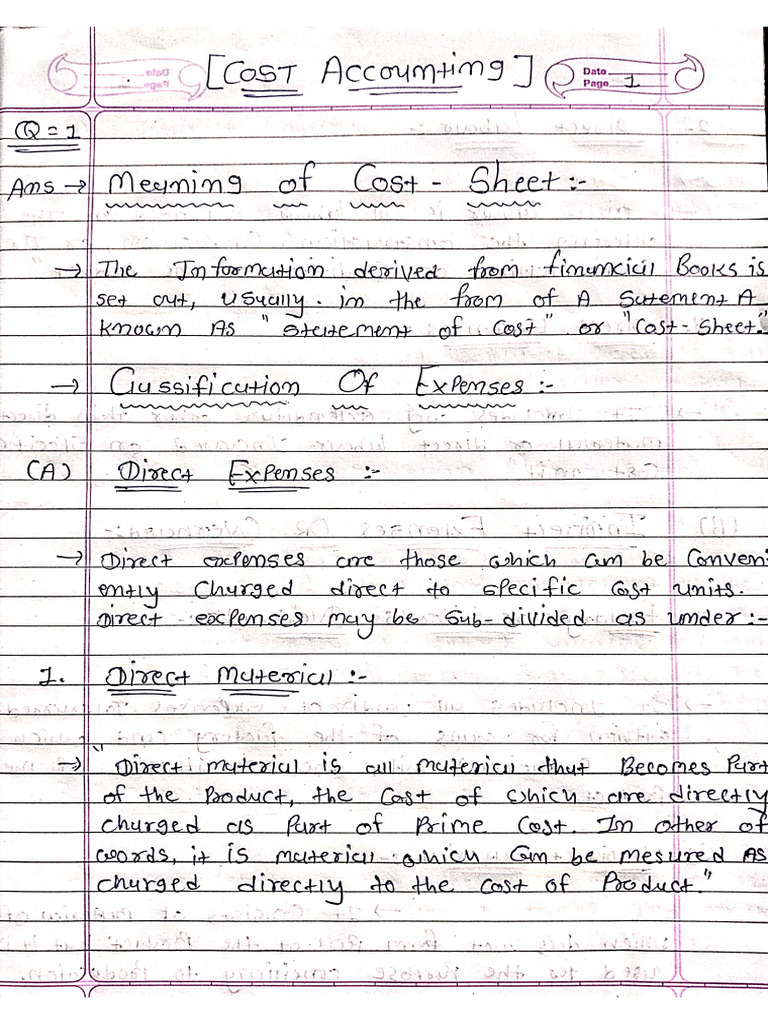 [COST Accounting]
Date
Page 1
Q=1
Ans → Meaning of Cost - Sheet :-
→ The Information derived from financial Books is
set out, usually. in the from of A Statement A
known As "Statement of Cost" or "Cost-Sheet."
→ Classification Of Expenses :-
(A) Direct Expenses :-
→ Direct expenses are those which can be Conveni
ently Charged direct to specific Cost units.
Direct expenses may be sub-divided as under :-
1. Direct Material :-
→ "Direct material is all material that Becomes Part
of the Product, the Cost of which are directly
charged as Part of Prime Cost. In other of
words, it is material which can be mesured As
charged directly to the cost of Product."